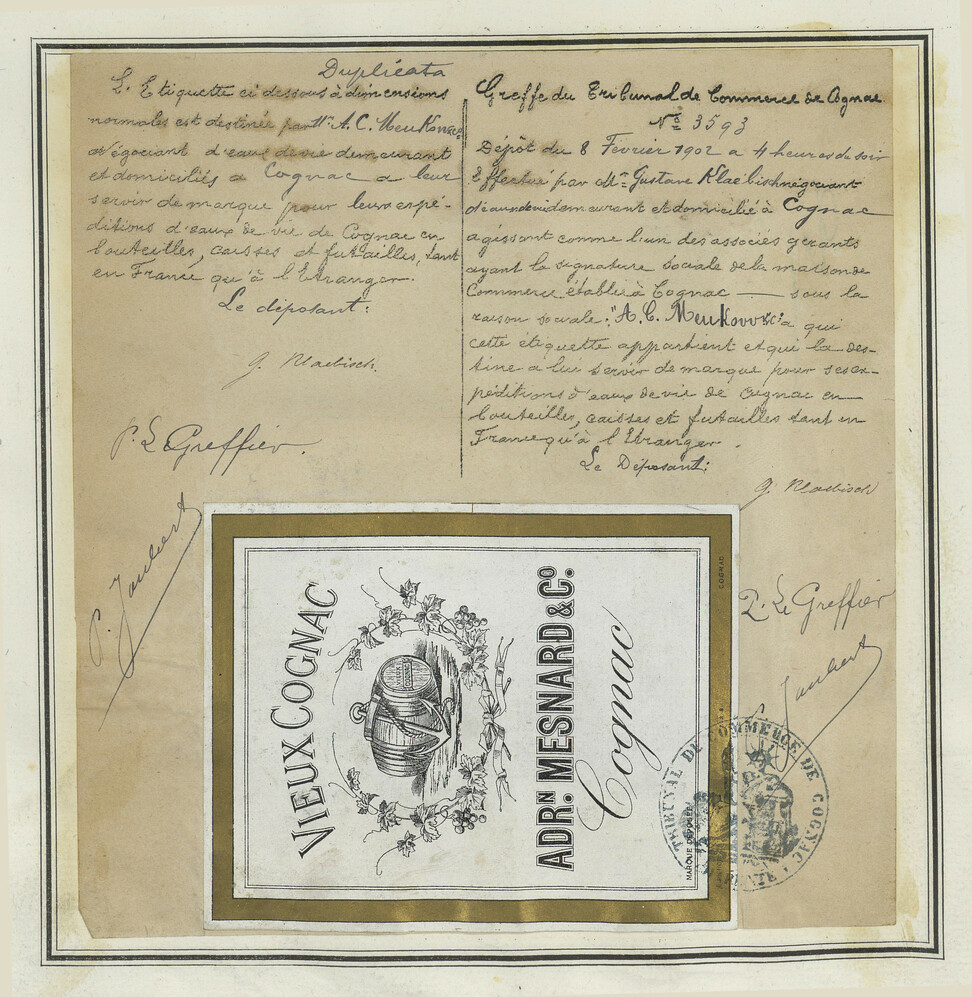 Duplicata
L'Etiquette ci dessous à dimensions
normales est destinée par Mrs A. C. Meukow & Co
Négociant d'eaux de vie demeurant
et domiciliés à Cognac a leur
servir de marque pour leurs expé-
ditions d'eaux de vie de Cognac en
bouteilles, caisses et futailles, tant
en France qu'à l'Etranger.
Le déposant:
G. Klaebisch.
P. Le Greffier.
P. Jaubert
Greffe du Tribunal de Commerce de Cognac
No 3593
Dépôt du 8 Fevrier 1902 a 4 heures du soir
Effectué par Mr Gustave Klaebisch négociant
d'eaux de vie demeurant et domicilié à Cognac
agissant comme l'un des associés gérants
ayant la signature sociale de la maison de
Commerce établie à Cognac — sous la
raison sociale: "A. C. Meukow & Cie a qui
cette étiquette appartient et qui la des-
tine a lui servir de marque pour ses ex-
péditions d'eaux de vie de Cognac en
bouteilles, caisses et futailles tant en
France qu'à l'Etranger.
Le Déposant:
G. Klaebisch
P. Le Greffier
Jaubert
VIEUX COGNAC
ADRN. MESNARD & CO.
Cognac
MARQUE DÉPOSÉE
COGNAC
TRIBUNAL DE COMMERCE DE COGNAC